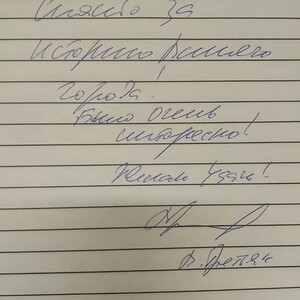 Спасибо за
историю Вашего
города!
Было очень
интересно!
Желаю удачи!